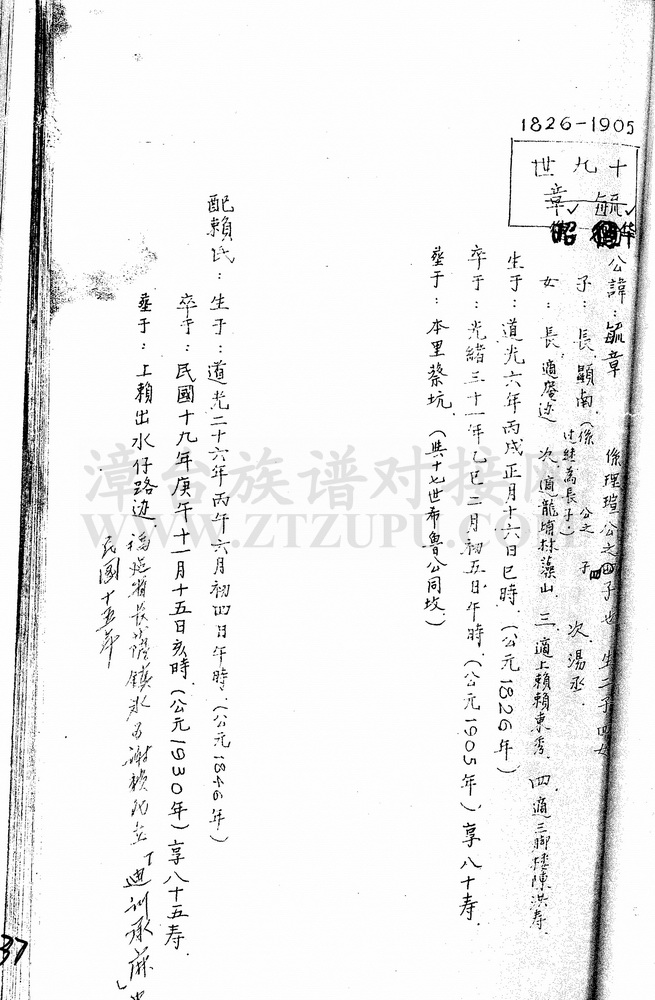 1826-1905
十九世
毓章
昭華
公諱：毓章 係理瑄公之四子也 生二子四女
子：長 顯南（係 公之 子
过继為長子） 次 湯丞
女：長 適庵边 次 適龍 林藻山 三 適上賴賴東秀 四 適三脚楼陳洪寿
生于：道光六年丙戌正月十六日巳時（公元1826年）
卒于：光緒三十一年乙巳二月初五日午時（公元1905年）享八十寿
塟于：本里蔡坑（與十七世希魯公同坟）
配賴氏：生于：道光二十六年丙午六月初四日午時（公元1846年）
卒于：民國十九年庚午十一月十五日亥時（公元1930年）享八十五寿
塟于：上賴出水仔路边
福建省長 鎮 謝 立「迪訓承庥」
民國十五年
37
漳台族谱对接网
WWW.ZTZUPU.COM